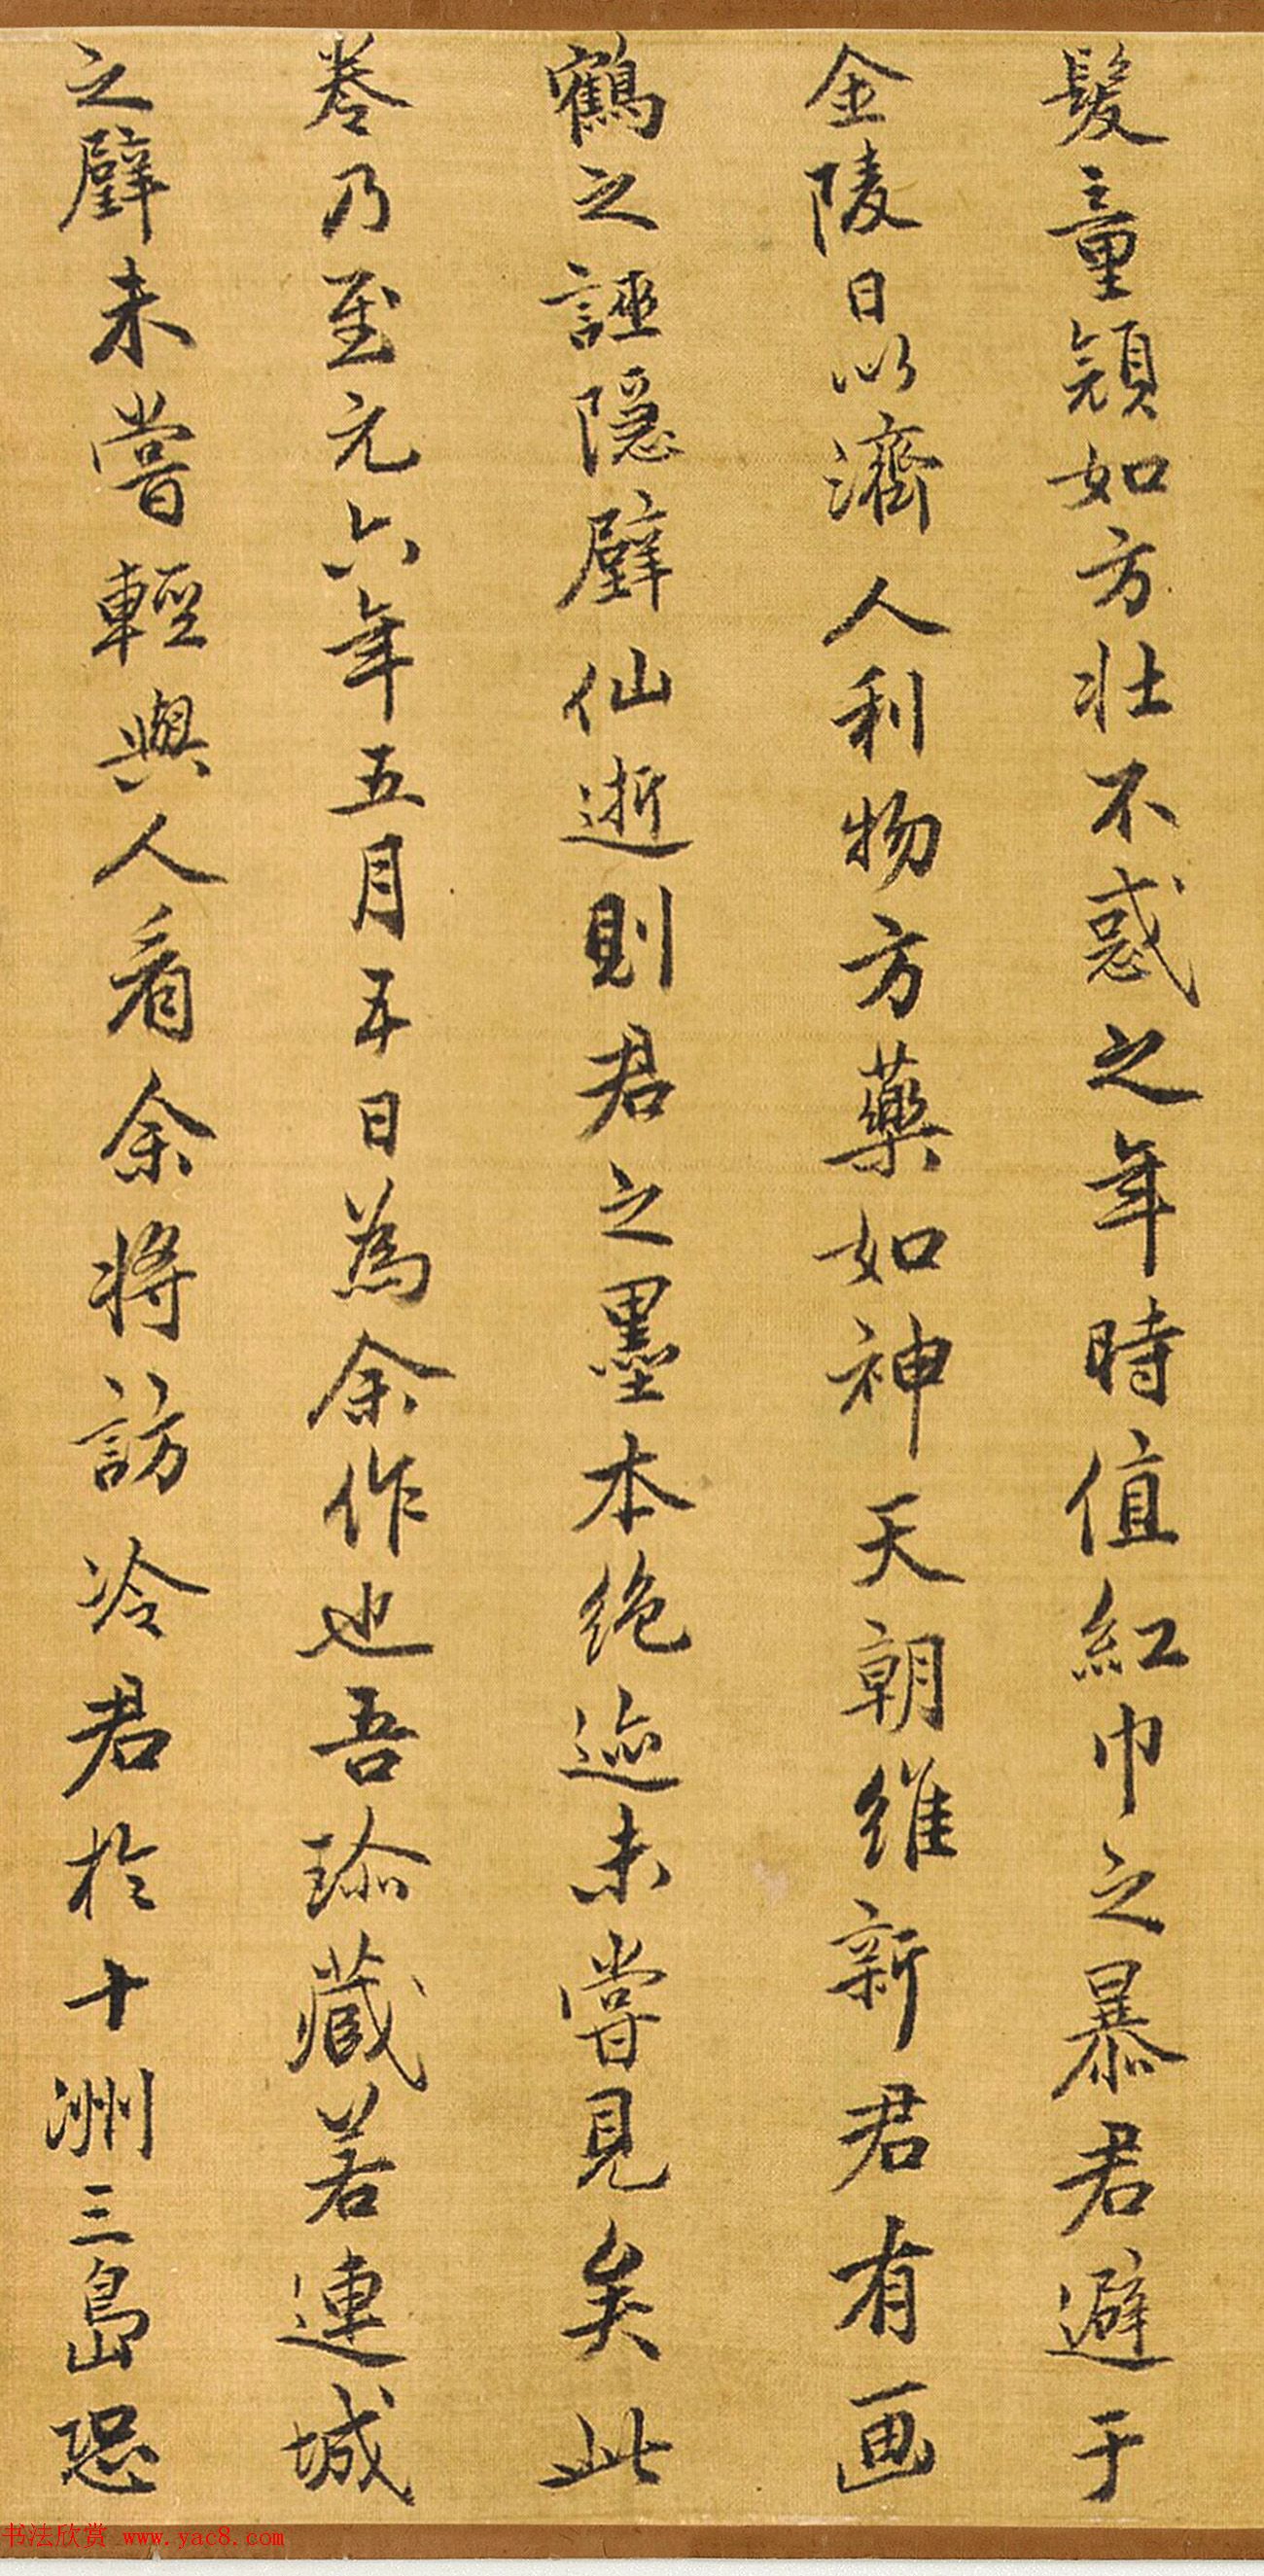 髮童顔如方壯不惑之年時值紅巾之暴君避于
金陵日以濟人利物方藥如神天朝維新君有画
鶴之誣隱壁仙逝則君之墨本絶迹未嘗見矣此
卷乃至元六年五月五日為余作也吾珍藏若連城
之璧未嘗輕與人看余將訪冷君於十洲三島恐
书法欣赏 www.yac8.com